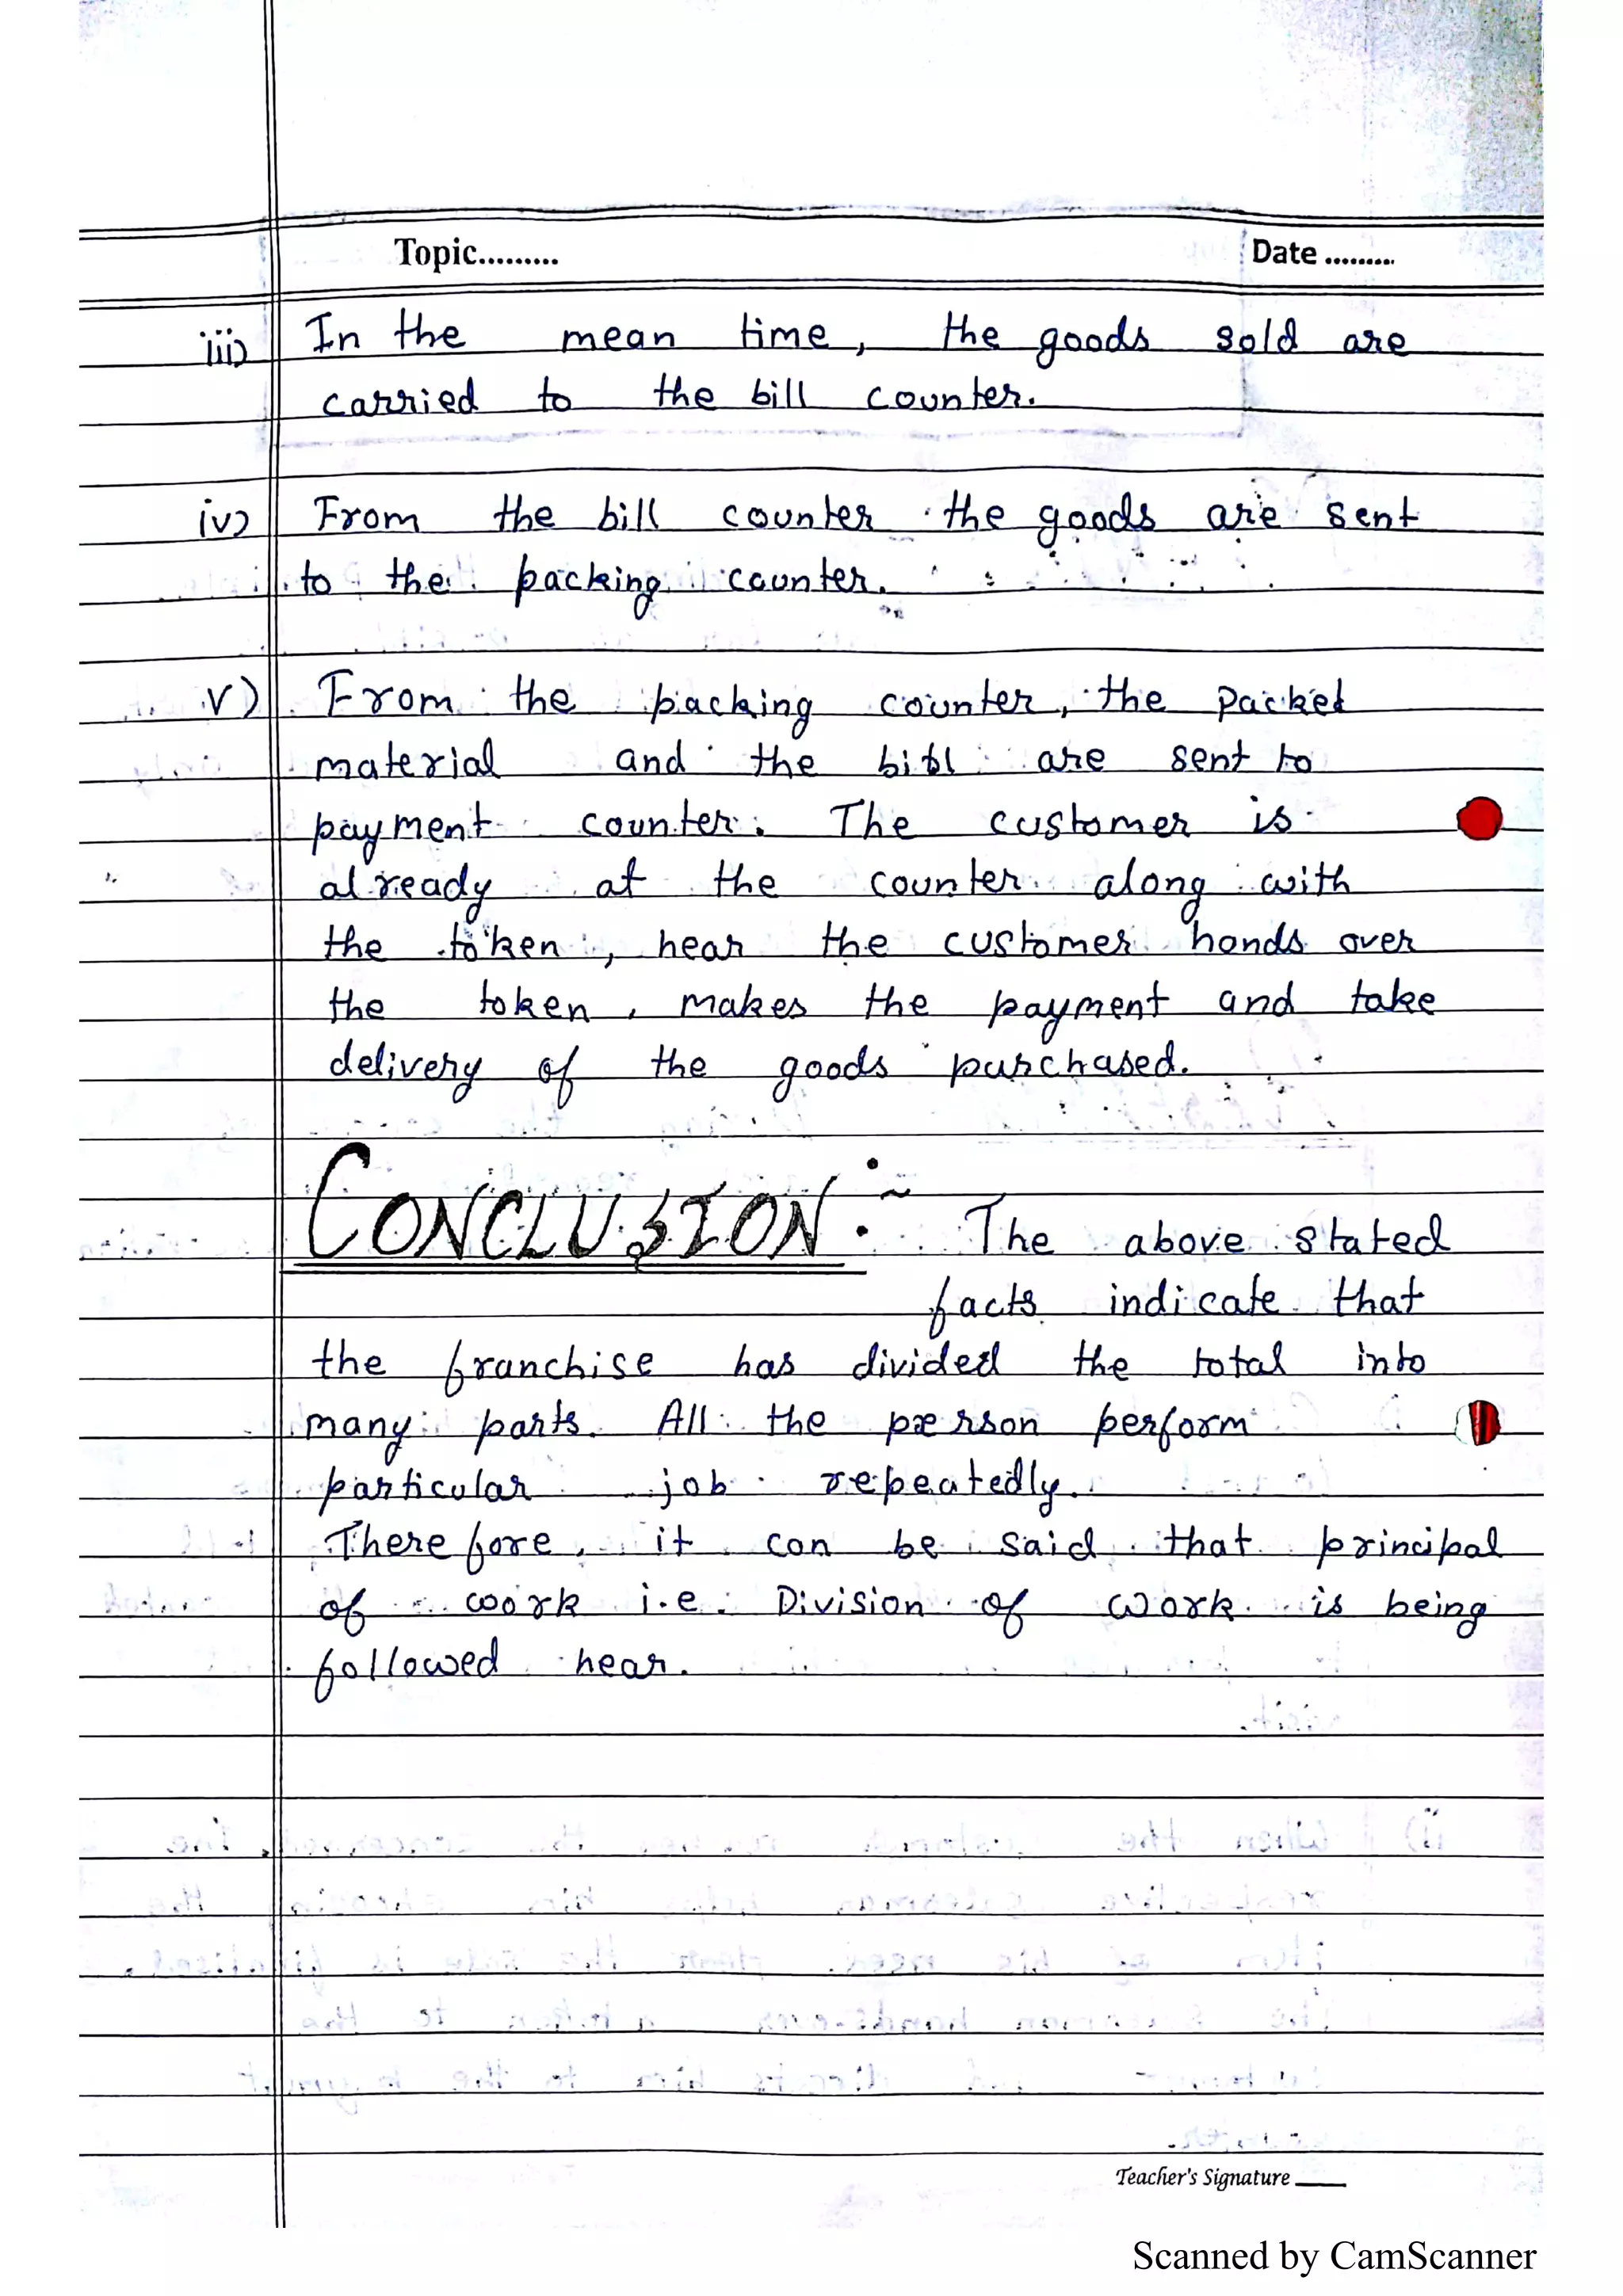 Topic......... Date .........
iii) In the mean time, the goods sold are
carried to the bill counter.
iv) From the bill counter the goods are sent
to the packing counter.
v) From the packing counter, the packet
material and the bill are sent to
payment counter. The customer is
already at the counter along with
the token, hear the customer hands over
the token, makes the payment and take
delivery of the goods purchased.
CONCLUSION:- The above stated
facts indicate that
the franchise has divided the total into
many parts. All the person perform
particular job repeatedly.
Therefore, it can be said that principal
of work i.e. Division of work is being
followed hear.
Teacher's Signature
Scanned by CamScanner